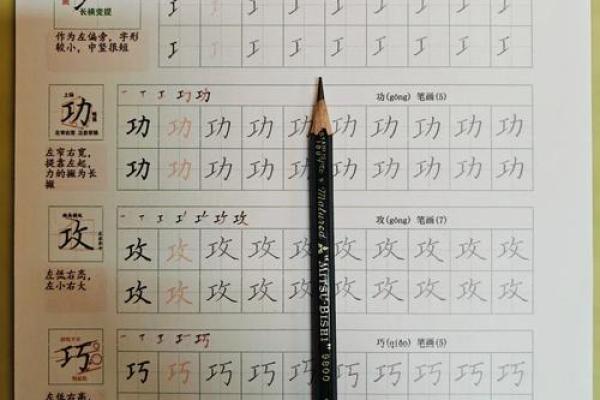 长横变提
作为左偏旁，字形
较小，中竖很短
工 工 工 工 工 工 工 工 工
工 工 工 工 工 工 工 工 工
功
左窄右宽 注意穿插
左窄右宽，
提靠左起，
力的撇为长
撇
功(gōng) 笔画(5)
功 功 功 功 功 功 功 功 功 功
功 功 功 功 功 功 功 功 功 功
攻
左低右高，
左小右大
攻(gōng) 笔画(7)
攻 攻 攻 攻 攻 攻 攻 攻 攻 攻
攻 攻 攻 攻 攻 攻 攻 攻 攻 攻
巧
左低右高，
巧(qiǎo) 笔画(5)
巧 巧 巧 巧 巧 巧 巧 巧 巧 巧
Matured
"MITSU-BISHI" 9800